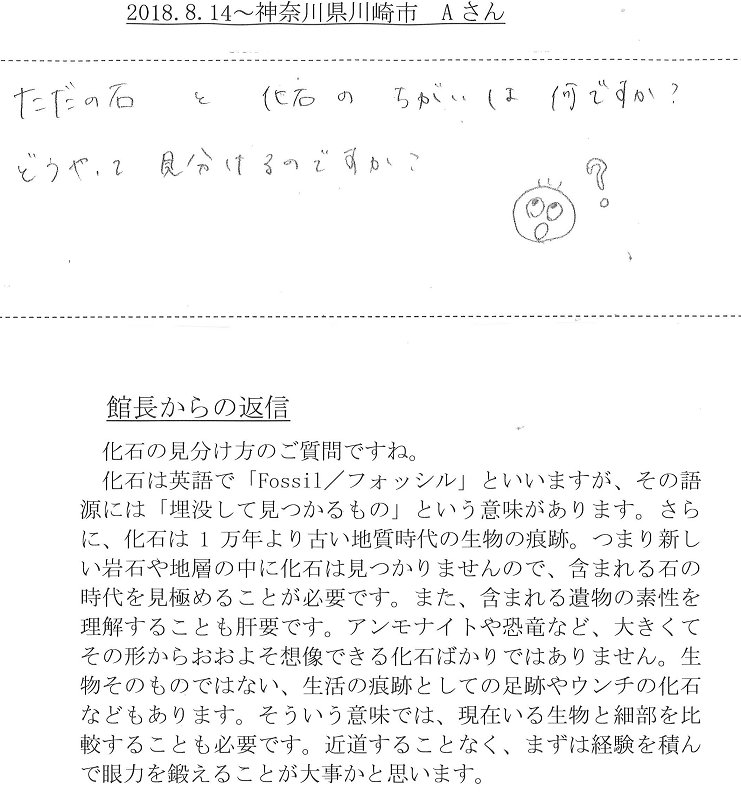 2018.8.14～神奈川県川崎市　Aさん
ただの石 と 化石の ちがいは 何ですか?
どうやって 見分けるのですか?
?
館長からの返信
化石の見分け方のご質問ですね。
化石は英語で「Fossil／フォッシル」といいますが、その語
源には「埋没して見つかるもの」という意味があります。さら
に、化石は 1 万年より古い地質時代の生物の痕跡。つまり新し
い岩石や地層の中に化石は見つかりませんので、含まれる石の
時代を見極めることが必要です。また、含まれる遺物の素性を
理解することも肝要です。アンモナイトや恐竜など、大きくて
その形からおおよそ想像できる化石ばかりではありません。生
物そのものではない、生活の痕跡としての足跡やウンチの化石
などもあります。そういう意味では、現在いる生物と細部を比
較することも必要です。近道することなく、まずは経験を積ん
で眼力を鍛えることが大事かと思います。